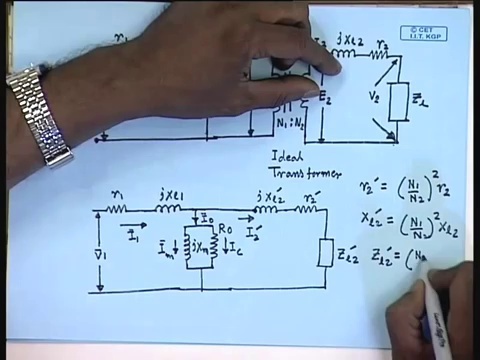 © CET
I.I.T. KGP
r₁
I₂
jxl2
r₂
E₂
V₂
Z̄l
N₁:N₂
Ideal
Transformer
r₁
jxl1
Ī₀
jxl2'
r₂'
Ī₁
I₂'
V̄₁
Īm
jXm
R₀
Ic
Z̄l2'
r₂' = (N₁/N₂)² r₂
xl2' = (N₁/N₂)² xl2
Zl2' = (N